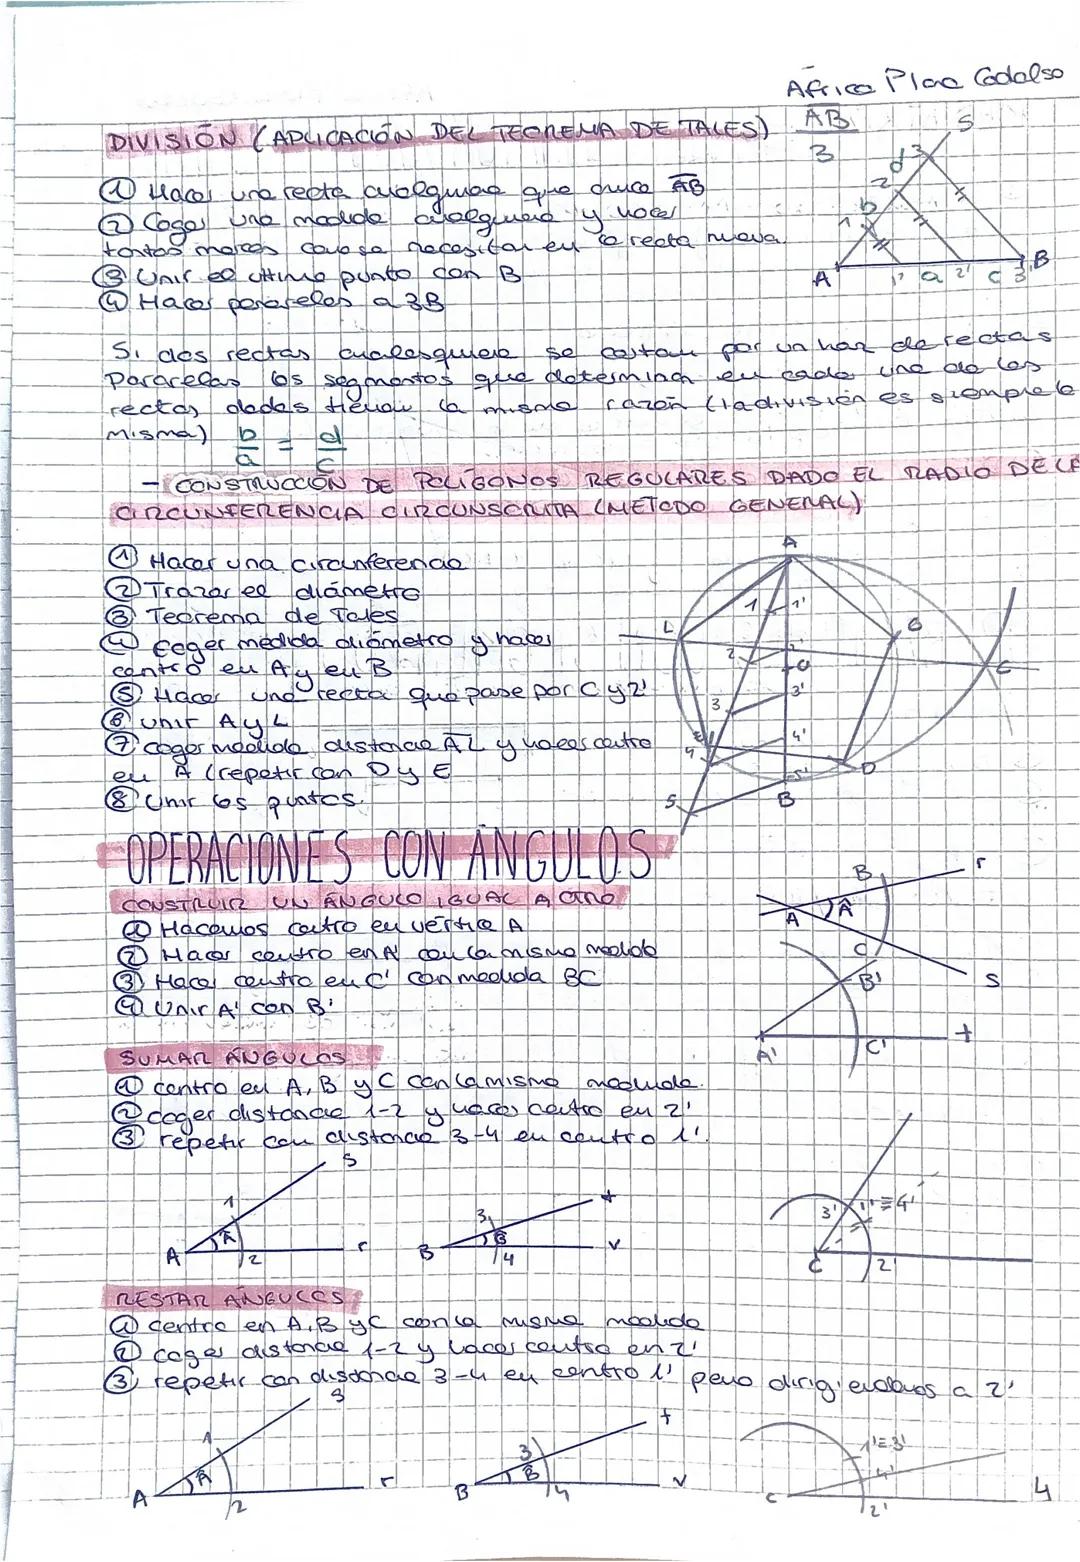 África Plana Codalso
DIVISIÓN (APLICACIÓN DEL TEOREMA DE TALES) AB
3
① Hacer una recta cualquiera que cruce AB
② Coger una medida cualquiera y hacer
tantas marcas como se necesitan en la recta nueva.
③ Unir el último punto con B
④ Hacer paralelas a 3B
S
d 3
2
b
1
A 1' a 2' c 3' B
Si dos rectas cualesquiera se cortan por un haz de rectas
paralelas los segmentos que determinan en cada una de las
rectas dadas tienen la misma razón (la división es siempre la
misma) b/a = d/c
- CONSTRUCCIÓN DE POLÍGONOS REGULARES DADO EL RADIO DE LA
CIRCUNFERENCIA CIRCUNSCRITA (MÉTODO GENERAL)
① Hacer una circunferencia
② Trazar el diámetro
③ Teorema de Tales
④ Coger medida diámetro y hacer
centro en A y en B
⑤ Hacer una recta que pase por C y 2'
⑥ Unir A y L
⑦ coger medida distancia AL y haces centro
en A (repetir con D y E
⑧ Unir los puntos.
A
1 1'
L G
2 2'
O C
3 3'
E 4 4'
D
5 5'
B
OPERACIONES CON ÁNGULOS
CONSTRUIR UN ÁNGULO IGUAL A OTRO
① Hacemos centro en vértice A
② Hacer centro en A' con la misma medida
③ Hacer centro en C' con medida BC
④ Unir A' con B'
B r
A Â
C S
B'
A' C' t
SUMAR ÁNGULOS
① centro en A, B y C con la misma medida.
② coger distancia 1-2 y haces centro en 2'
③ repetir con distancia 3-4 en centro 1'.
S
1
A Â 2 r
t
3
B B̂ 4 v
3' 1'≡4'
C 2'
RESTAR ÁNGULOS
① centro en A, B y C con la misma medida
② coger distancia 1-2 y haces centro en 2'
③ repetir con distancia 3-4 en centro 1' pero dirigiéndonos a 2'
S
1
A Â 2 r
t
3
B B̂ 4 v
1'≡3'
4'
C 2'
4